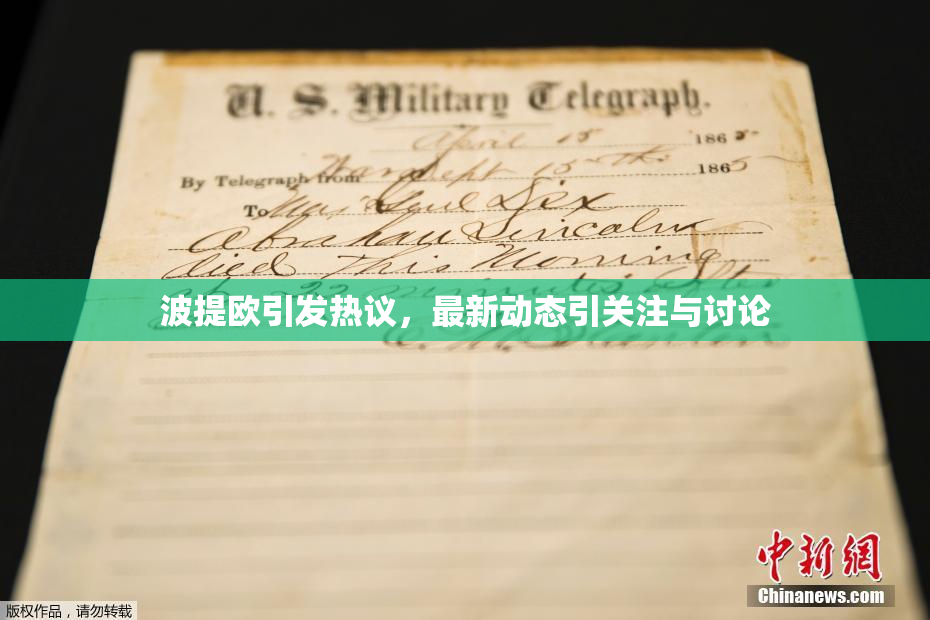 U. S. Military Telegraph.
April 15 1865
By Telegraph from War Dept 15th 1865
To Maj Genl Dix
Abraham Lincoln
died This Morning
at 22 minutes after
波提欧引发热议，最新动态引关注与讨论
E. M. Stanton
中新网
Chinanews.com
版权作品，请勿转载